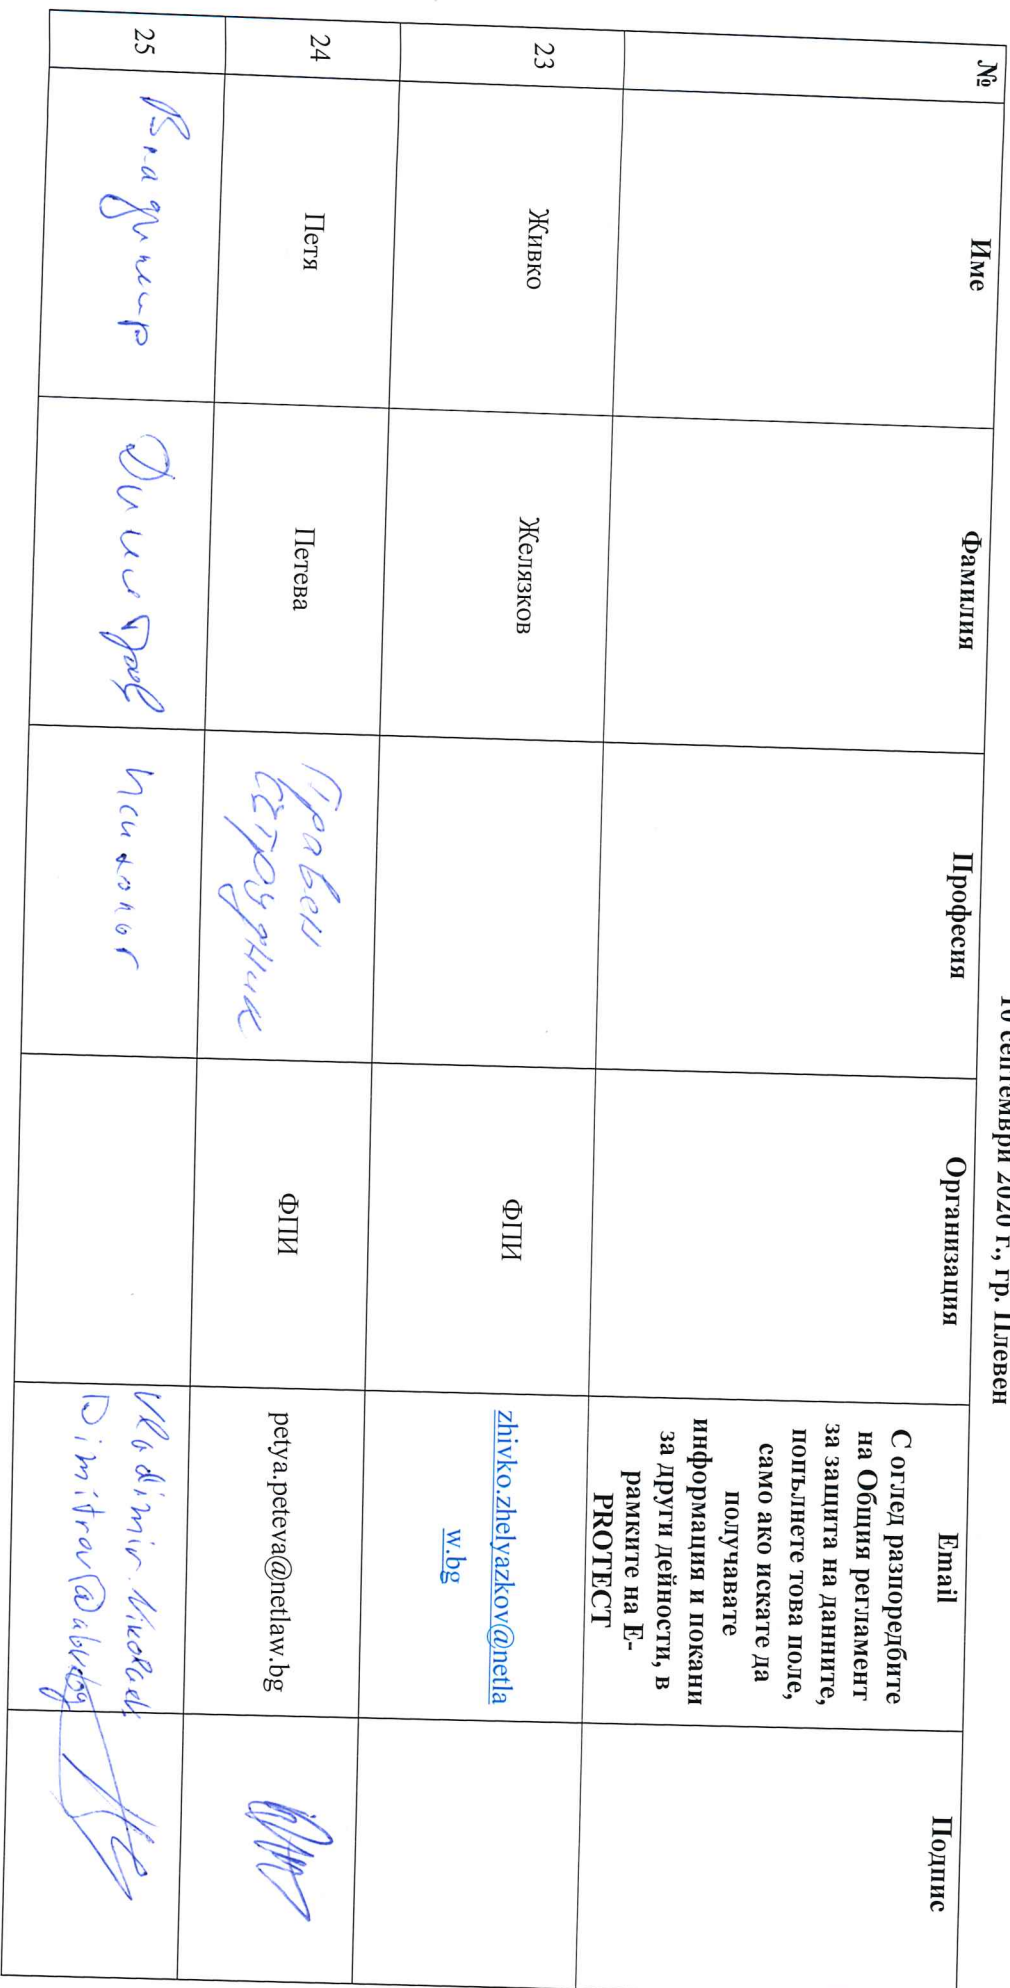 10 септември 2020 г., гр. Плевен
№ Име Фамилия Професия Организация Email Подпис
С оглед разпоредбите
на Общия регламент
за защита на данните,
попълнете това поле,
само ако искате да
получавате
информация и покани
за други дейности, в
рамките на E-
PROTECT
23 Живко Желязков ФПИ zhivko.zhelyazkov@netla
w.bg
24 Петя Петева Правен ФПИ petya.peteva@netlaw.bg
сътрудник
25 Владимир Димитров Психолог Vladimir.Nikolaev
Dimitrov@abv.bg